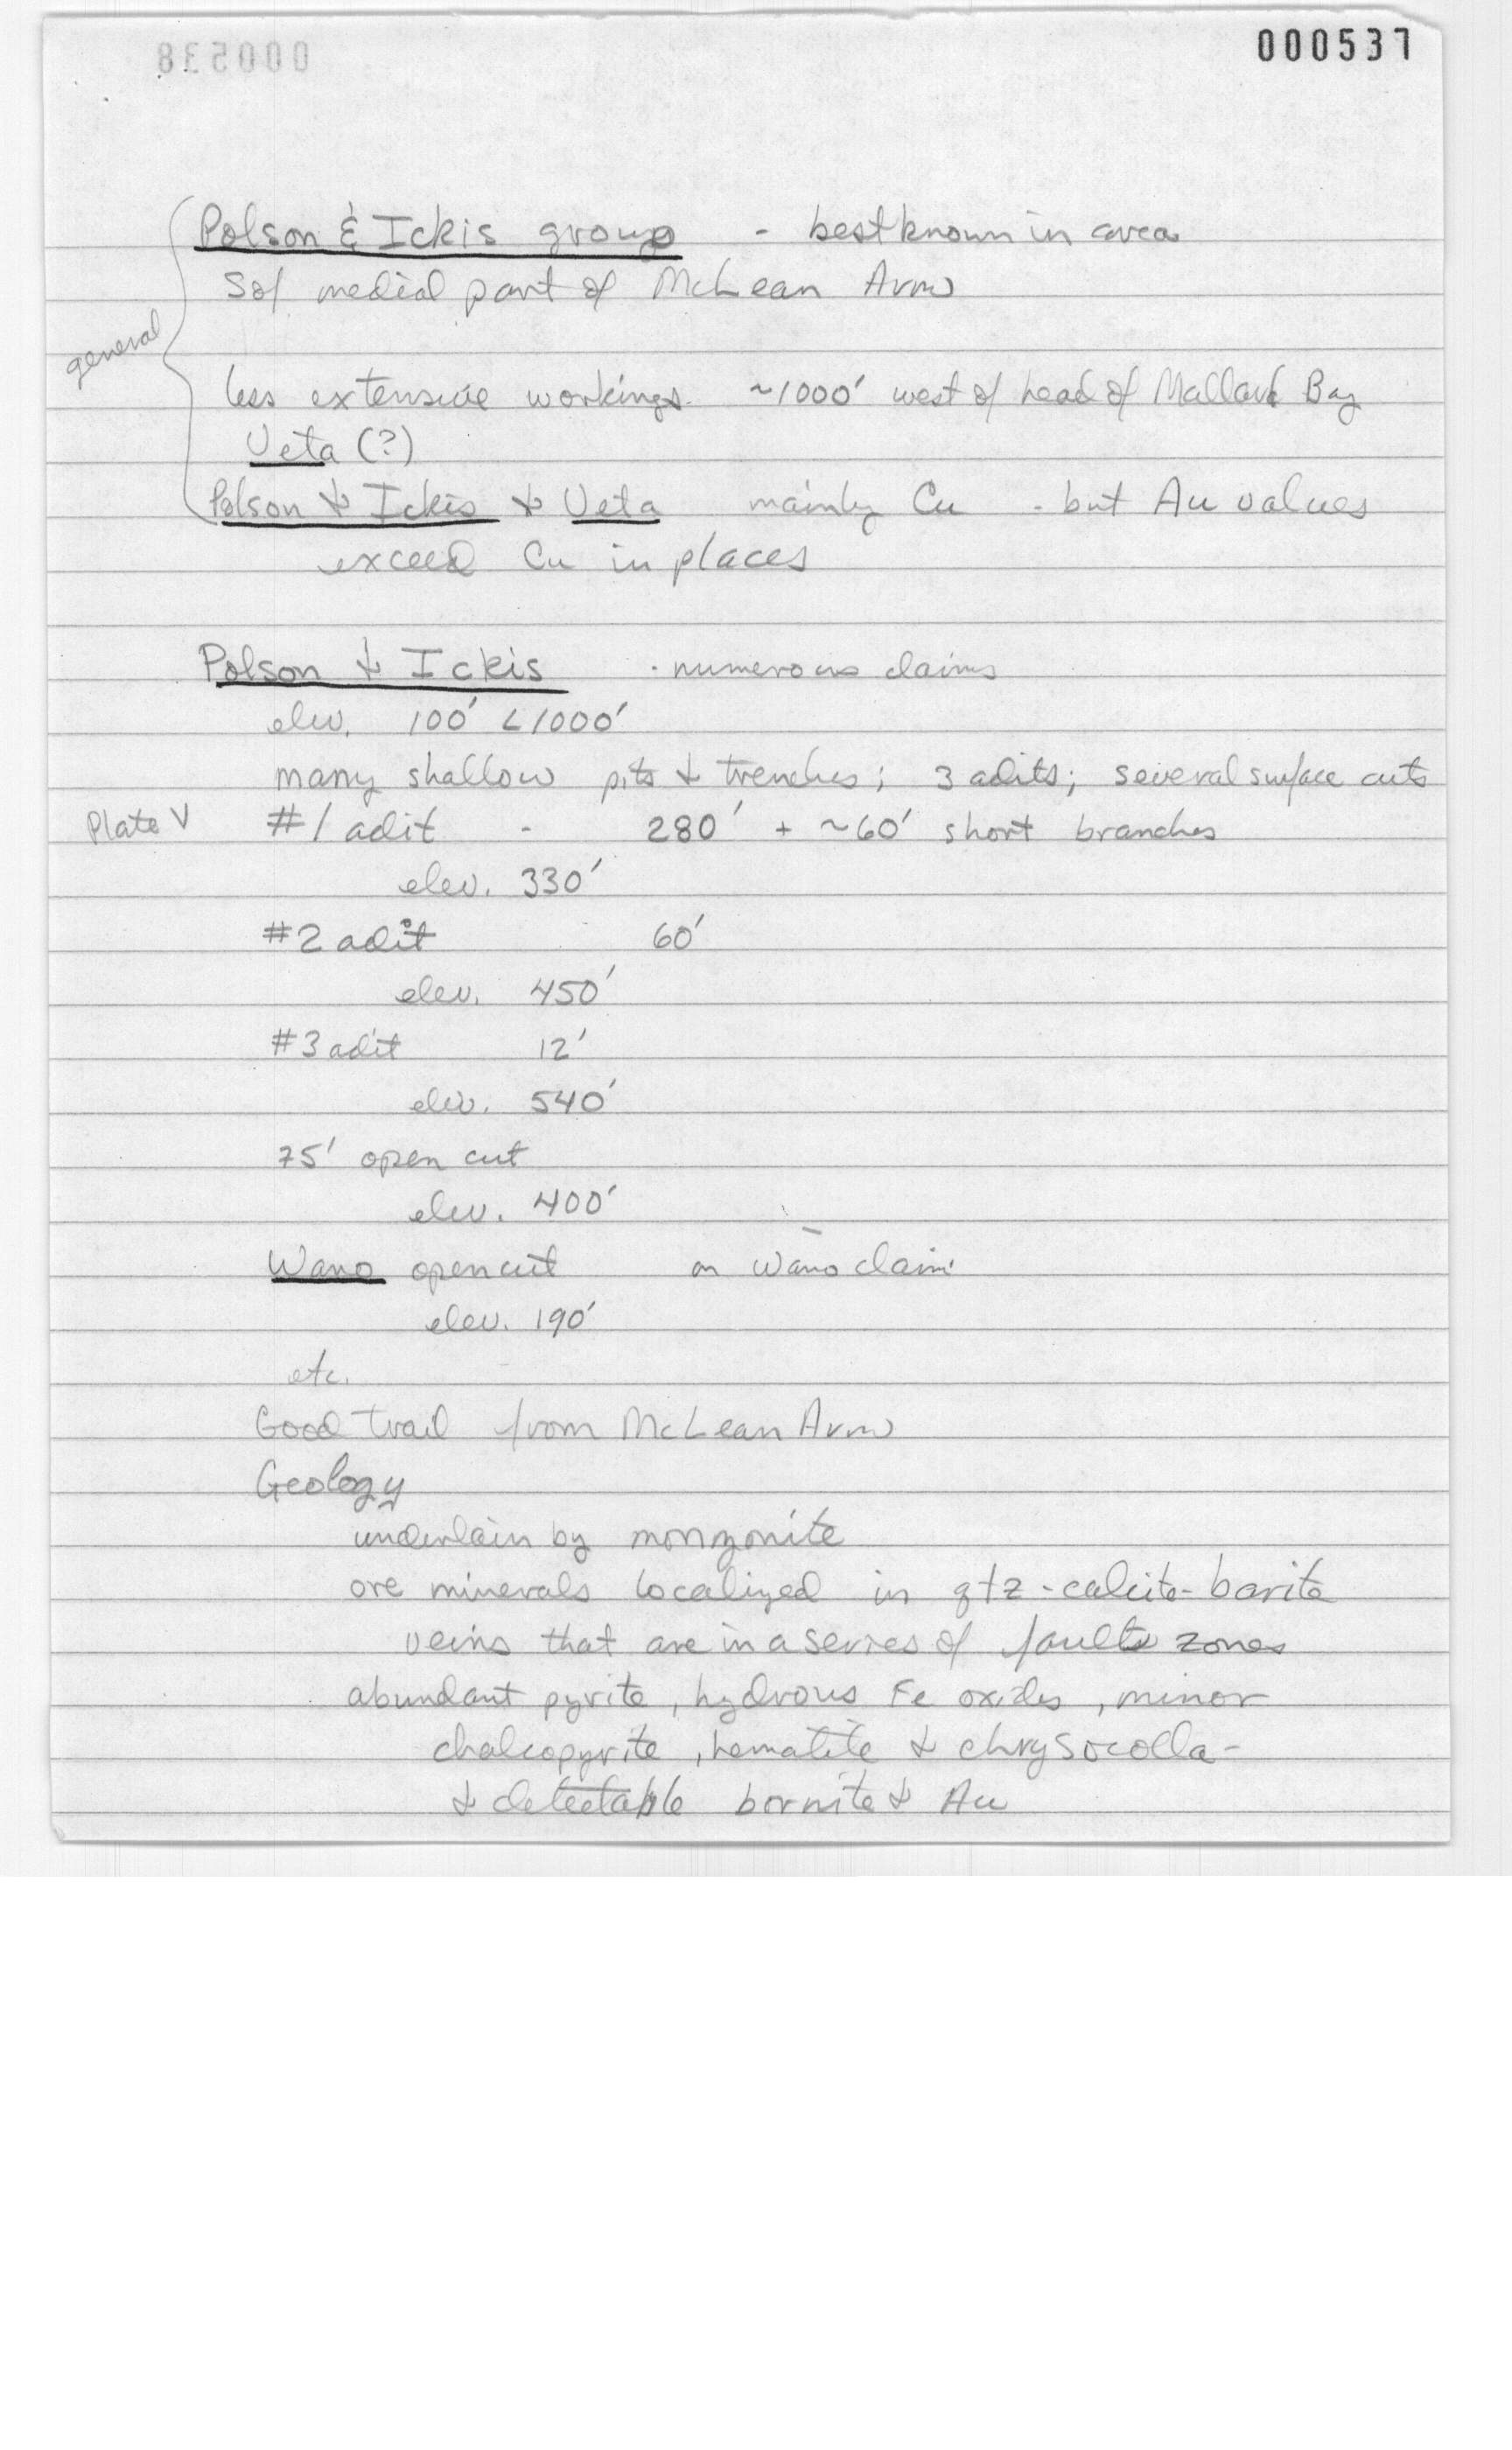 000537
Polson & Ickis group - best known in area
S of medial part of McLean Arm
general
less extensive workings. ~1000' west of head of Mallard Bay
Veta (?)
Polson & Ickis & Veta mainly Cu - but Au values
exceed Cu in places
Polson & Ickis - numerous claims
elev. 100' < 1000'
many shallow pits & trenches; 3 adits; several surface cuts
Plate V #1 adit - 280' + ~60' short branches
elev. 330'
#2 adit 60'
elev. 450'
#3 adit 12'
elev. 540'
75' open cut
elev. 400'
Wano open cut on Wano claim
elev. 190'
etc.
Good trail from McLean Arm
Geology
underlain by monzonite
ore minerals localized in qtz-calcite-barite
veins that are in a series of fault zones
abundant pyrite, hydrous Fe oxides, minor
chalcopyrite, hematite & chrysocolla -
& detectable bornite & Au